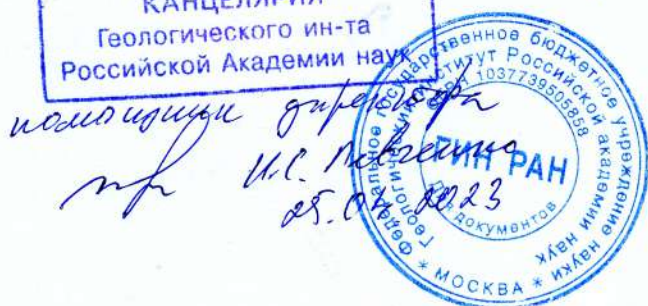 КАНЦЕЛЯРИЯ
Геологического ин-та
Российской Академии наук
помощник директора
И.С.
25.04.2023
Федеральное государственное бюджетное учреждение науки
Геологический институт Российской академии наук
ОГРН 1037739505858
ГИН РАН
Для документов
* МОСКВА *